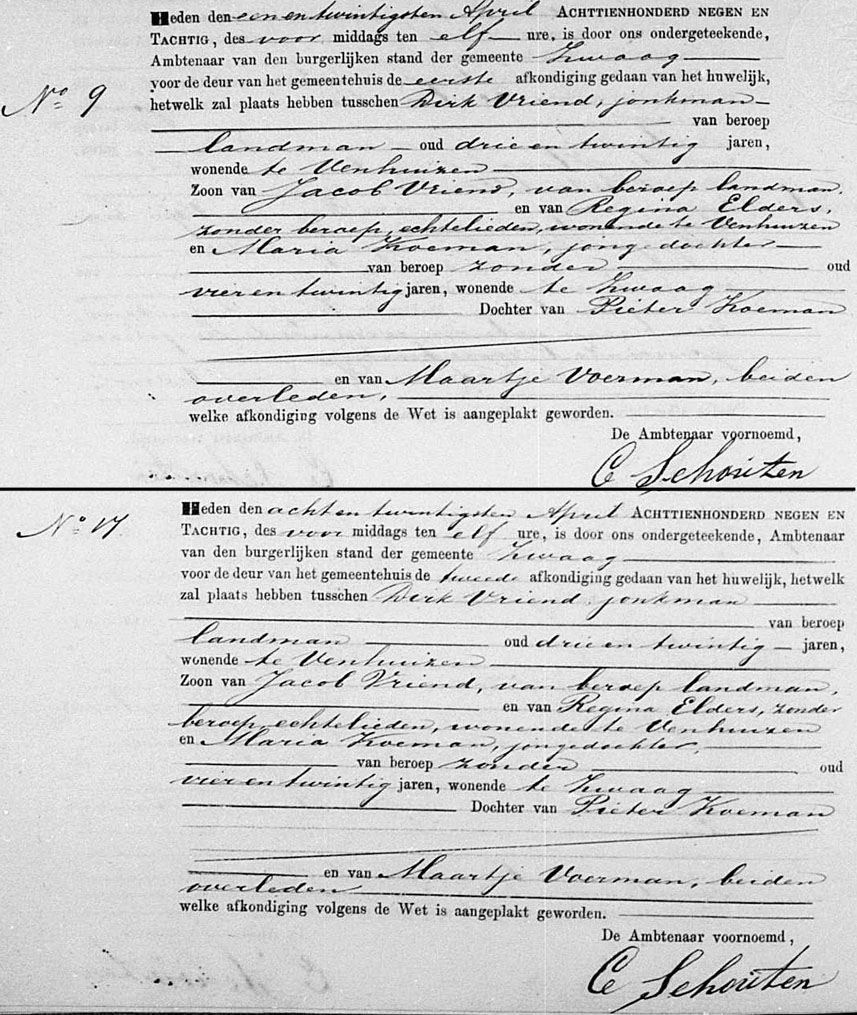 Heden den een en twintigsten April ACHTTIENHONDERD NEGEN EN
TACHTIG, des voor middags ten elf ure, is door ons ondergeteekende,
Ambtenaar van den burgerlijken stand der gemeente Zwaag
voor de deur van het gemeentehuis de eerste afkondiging gedaan van het huwelijk,
No 9 hetwelk zal plaats hebben tusschen Dirk Vriend, jonkman
van beroep
landman oud drie en twintig jaren,
wonende te Venhuizen
Zoon van Jacob Vriend, van beroep landman,
en van Regina Elders,
zonder beroep, echtelieden, wonende te Venhuizen
en Maria Koeman, jonge dochter
van beroep zonder oud
vier en twintig jaren, wonende te Zwaag
Dochter van Pieter Koeman
en van Maartje Voerman, beiden
overleden,
welke afkondiging volgens de Wet is aangeplakt geworden.
De Ambtenaar voornoemd,
C Schouten
Heden den acht en twintigsten April ACHTTIENHONDERD NEGEN EN
No 17 TACHTIG, des voor middags ten elf ure, is door ons ondergeteekende, Ambtenaar
van den burgerlijken stand der gemeente Zwaag
voor de deur van het gemeentehuis de tweede afkondiging gedaan van het huwelijk, hetwelk
zal plaats hebben tusschen Dirk Vriend, jonkman
van beroep
landman oud drie en twintig jaren,
wonende te Venhuizen
Zoon van Jacob Vriend, van beroep landman,
en van Regina Elders, zonder
beroep, echtelieden, wonende te Venhuizen
en Maria Koeman, jongedochter,
van beroep zonder oud
vier en twintig jaren, wonende te Zwaag
Dochter van Pieter Koeman
en van Maartje Voerman, beiden
overleden
welke afkondiging volgens de Wet is aangeplakt geworden.
De Ambtenaar voornoemd,
C Schouten